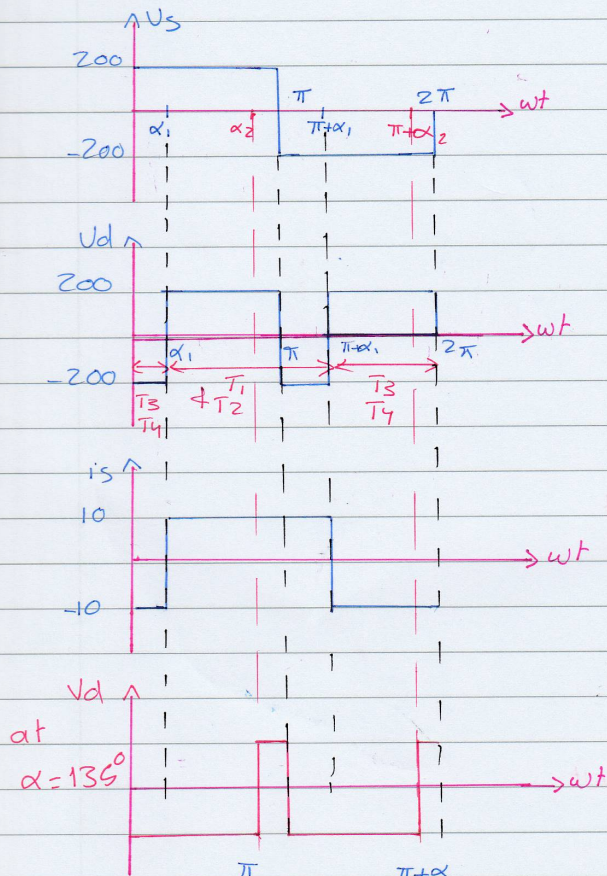 Vs
200
π 2π wt
α₁ α₂ π+α₁ π+α₂
-200
Vd
200
wt
α₁ π π+α₁ 2π
-200
T3 T4
T1 & T2
T3 T4
is
10
wt
-10
Vd
at
α=135°
wt
π π+α